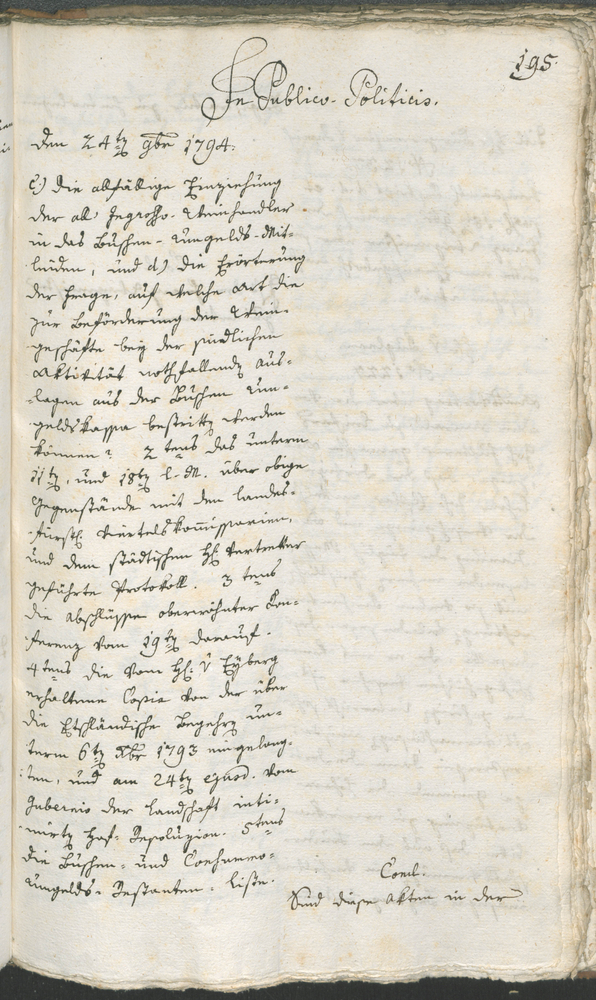 195.
In Publico-Politicis.
den 24tn 9br 1794.
c.) die allfällige Einziehung
der all' Ingrosso-Weinhandler
in das Buschen-Umgelds-Mit-
leiden, und d) die Erörterung
der Frage, auf welche Art die
zur Beförderung der Wein-
geschäfte bey der südlichen
Aktivität nothfallends Aus-
lagen aus der Buschen Um-
geldskassa bestritten werden
können? 2tens das unterm
11tn, und 18tn l. M. über obige
Gegenstände mit den landes-
fürstl. Viertelskommissarien,
und dem städtischen H. Vertretter
geführte Protokoll. 3tens
die Abschlüsse oberwähnter Kon-
ferenz vom 19tn darauf.
4tens die vom H. v Eyberg
erhaltene Copia von der über
die Etschländische Begehren un-
term 6tn Xbr 1793 eingelang-
ten, und am 24tn ejusd. vom
Gubernio der Landschaft inti-
mirten Hof-Resoluzion. 5tens
die Buschen- und
Umgelds-Restanten-liste.
Concl.
Sind diese Akten in der